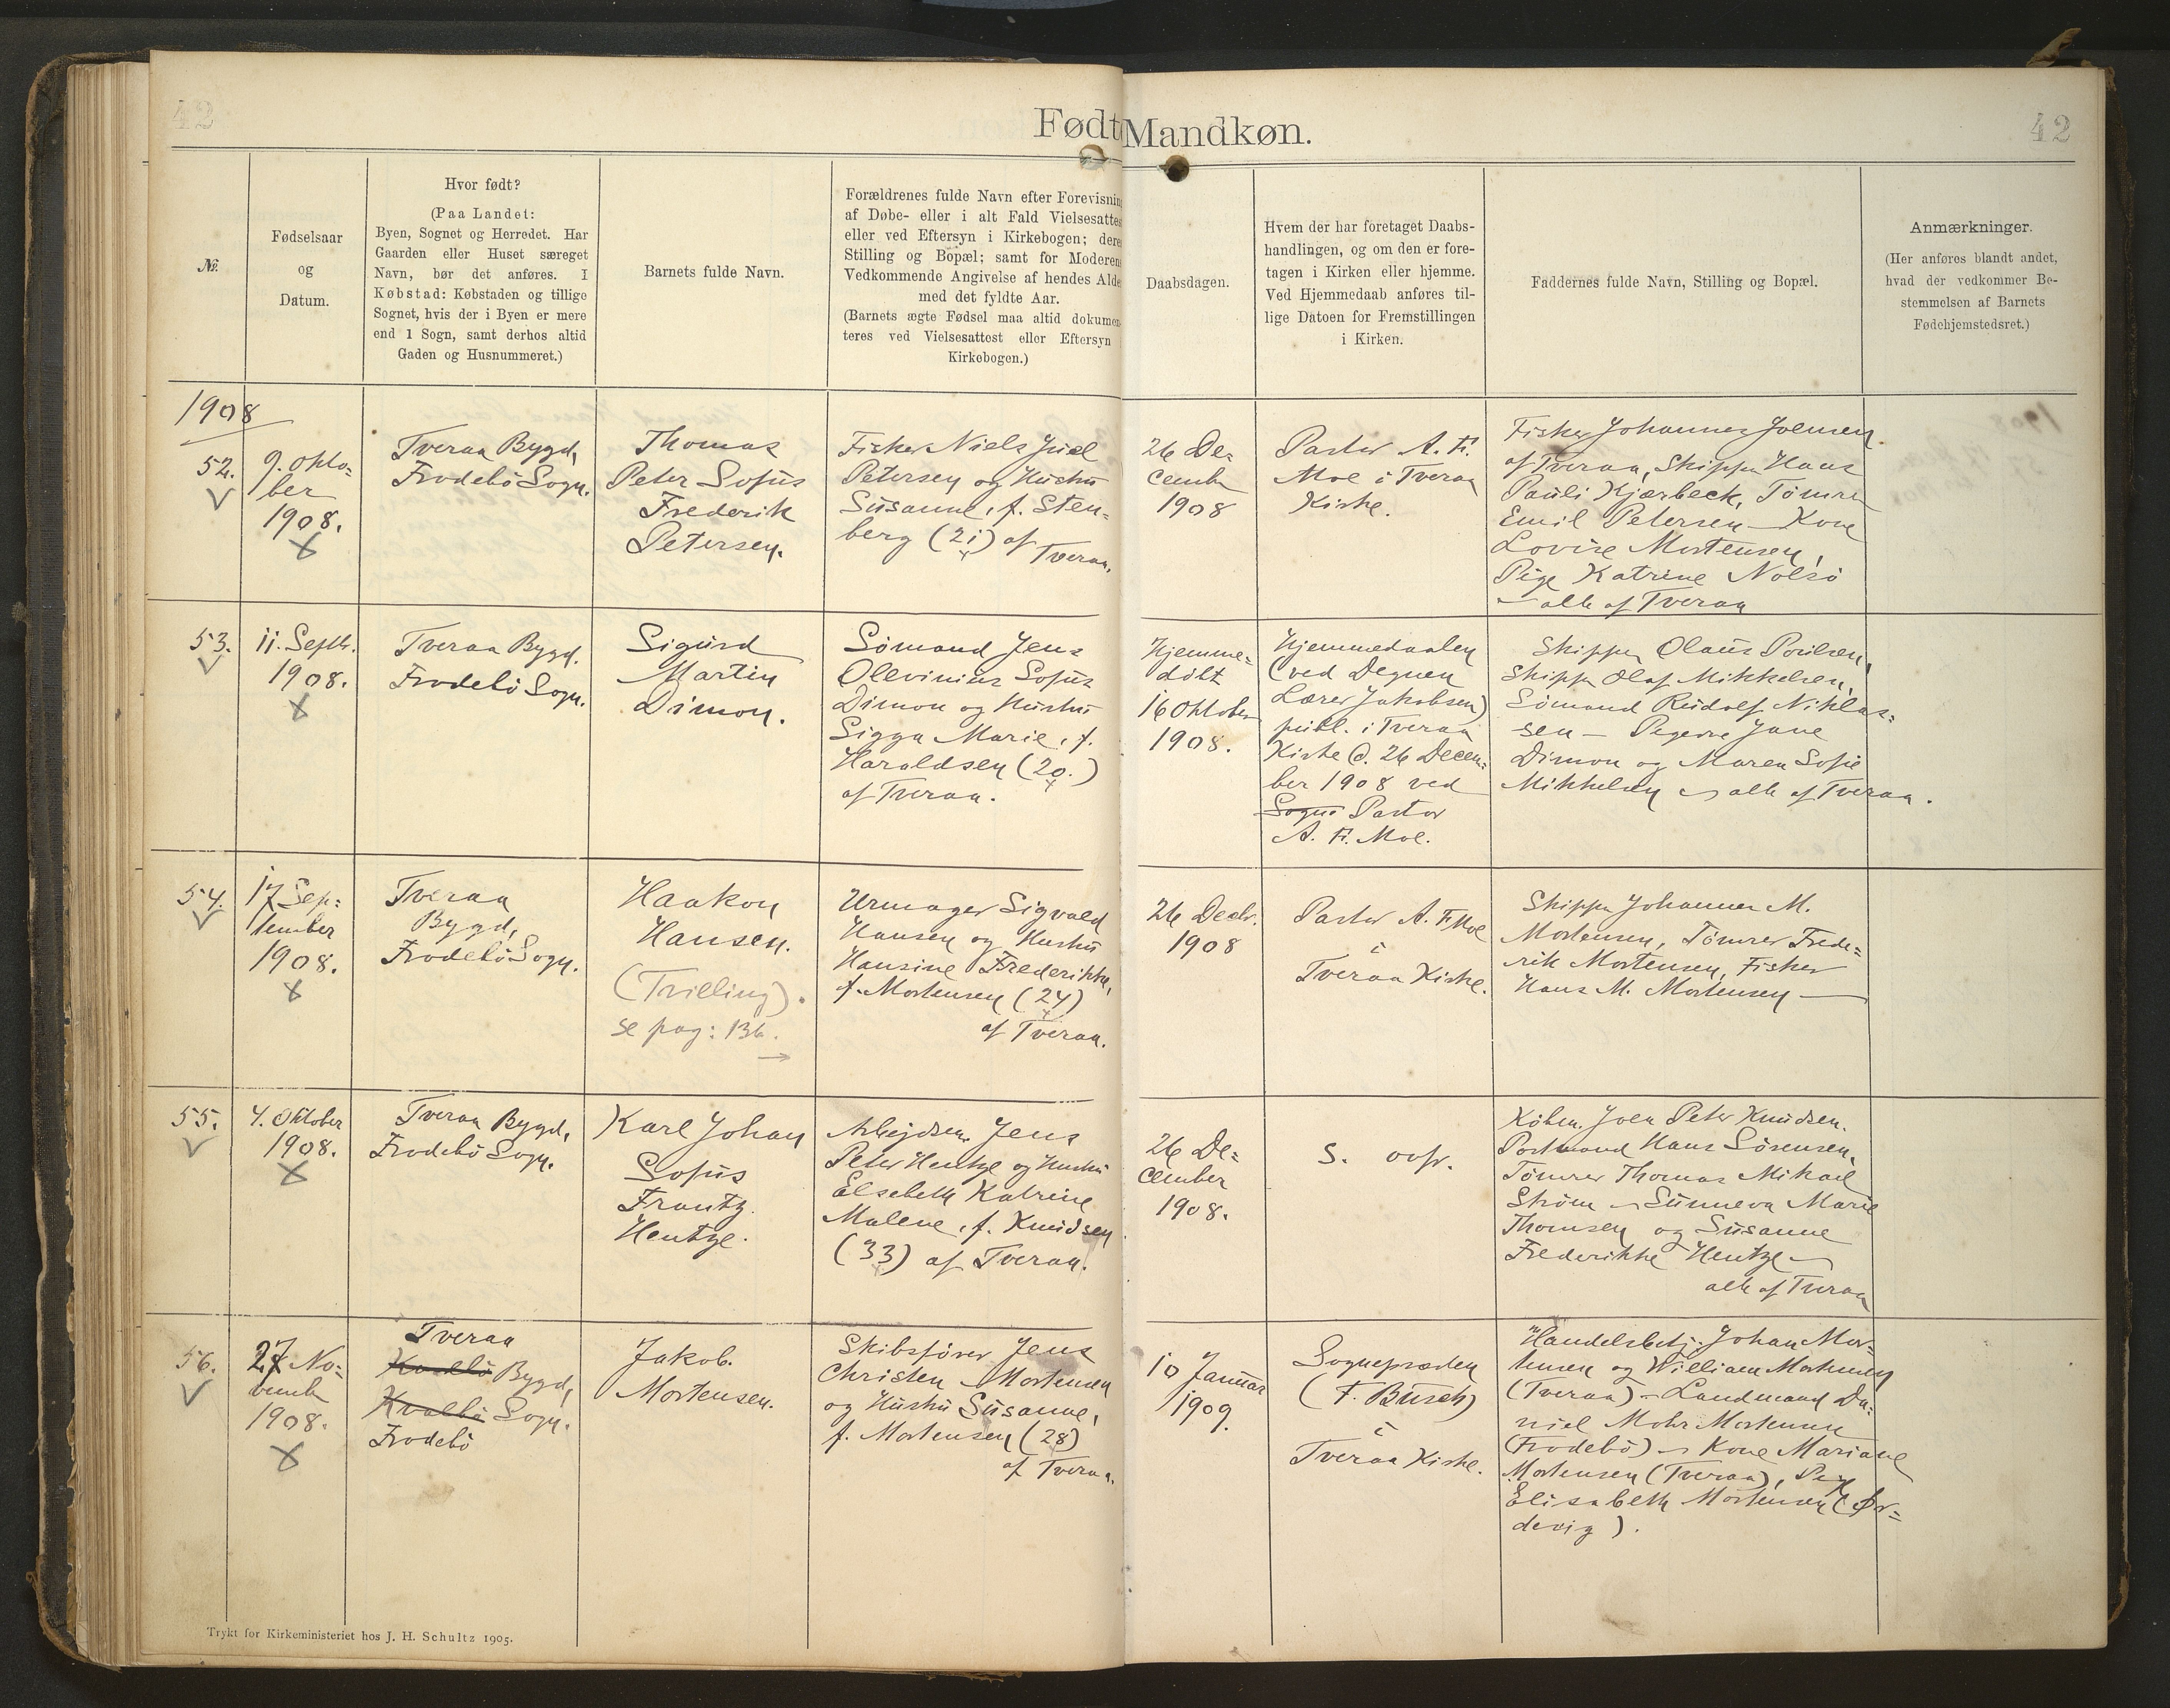 42
Født
Mandkøn.
42
№.
Fødselsaar
og
Datum.
Hvor født?
(Paa Landet:
Byen, Sognet og Herredet. Har
Gaarden eller Huset særeget
Navn, bør det anføres. I
Købstad: Købstaden og tillige
Sognet, hvis der i Byen er mere
end 1 Sogn, samt derhos altid
Gaden og Husnummeret.)
Barnets fulde Navn.
Forældrenes fulde Navn efter Forevisnin
af Døbe- eller i alt Fald Vielsesattes
eller ved Eftersyn i Kirkebogen; dere
Stilling og Bopæl; samt for Moderen
Vedkommende Angivelse af hendes Alde
med det fyldte Aar.
(Barnets ægte Fødsel maa altid dokumen
teres ved Vielsesattest eller Eftersyn
Kirkebogen.)
Daabsdagen.
Hvem der har foretaget Daabs-
handlingen, og om den er fore-
tagen i Kirken eller hjemme.
Ved Hjemmedaab anføres til-
lige Datoen for Fremstillingen
i Kirken.
Faddernes fulde Navn, Stilling og Bopæl.
Anmærkninger.
(Her anføres blandt andet,
hvad der vedkommer Be-
stemmelsen af Barnets
Fødehjemstedsret.)
1908
52.
9. Okto-
ber
1908.
Tveraa Bygd,
Frodebö Sogn.
Thomas
Peter Sofus
Frederik
Petersen.
Fisker Niels Juel
Petersen og Hustru
Susanne, f. Sten=
berg (21) af
Tveraa.
26 De=
cember
1908
Pastor A. F.
Moe i Tveraa
Kirke.
Fisker Johannes Joensen
af Tveraa, Skipper Hans
Pauli Kjærbeck, Tömrer
Emil Petersen – Kone
Lovise Mortensen,
Pige Katrine Nolsö
– alle af Tveraa
53.
11. Septb.
1908.
Tveraa Bygd.
Frodebö Sogn.
Sigurd
Martin
Dimon.
Sömand Jens
Olevinius Sofus
Dimon og Hustru
Sigga Marie, f.
Haraldsen (20.)
af Tveraa.
Hjemme=
döbt
16 Oktober
1908.
Hjemmedaaben
(ved Degnen
Lærer Jakobsen)
publ. i Tveraa
Kirke d. 26 Decem=
ber 1908 ved
Sogne Pastor
A. F. Moe.
Skipper Olaus Poulsen,
Skipper Olaf Mikkelsen,
Sömand Rudolf Niklas=
sen – Pigerne Jane
Dimon og Maren Sofie
Mikkelsen – alle af Tveraa.
54.
17 Sep=
tember
1908.
Tveraa
Bygd,
Frodebö Sogn.
Haakon
Hansen.
(Trilling).
se pag: 136.
→
Urmager Sigvald
Hansen og Hustru
Hansine Frederikke,
f. Mortensen (24)
af Tveraa.
26 Decbr.
1908
Pastor A. F. Moe
i
Tveraa Kirke.
Skipper Johannes M.
Mortensen, Tömrer Frede=
rik Mortensen, Fisker
Hans M. Mortensen –
55.
4. Oktober
1908.
Tveraa Bygd,
Frodebö Sogn.
Karl Johan
Sofus
Frantz
Hentze.
Arbejdsm. Jens
Peter Hentze og Hustru
Elsebeth Katrine
Malene, f. Knudsen
(33) af Tveraa.
26 De=
cember
1908.
S. ovfr.
Købm. Joen Peter Knudsen.
Postmand Hans Sörensen,
Tömrer Thomas Mikael
Ström – Sunneva Marie
Thomsen og Susanne
Frederikke Hentze –
alle af Tveraa
56.
27 No=
vember
1908.
Tveraa
Kvalbö Bygd,
Kvalbö Sogn.
Frodebö
Jakob
Mortensen.
Skibsförer Jens
Christen Mortensen
og Hustru Susanne,
f. Mortensen (28)
af Tveraa.
10 Januar
1909.
Sognepræsten
(F. Busch)
i
Tveraa Kirke.
Handelsbetj. Johan Mor=
tensen og William Mortensen
(Tveraa) – Landmand Da=
niel Mohr Mortensen
(Frodebö) – Kone Mariane
Mortensen (Tveraa), Pige
Elisabeth Mortensen (Ör=
devig).
Trykt for Kirkeministeriet hos J. H. Schultz 1905.